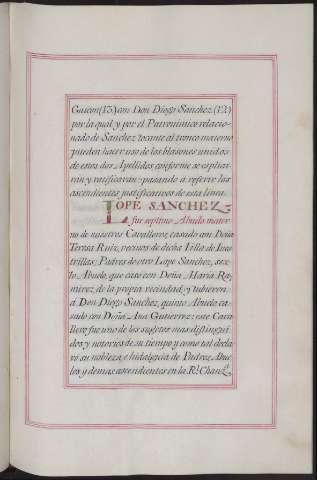 Garcon (V3.) con Don Diego Sanchez, (V2.)
por la qual y por el Patronimico relacio-
nado de Sanchez tocante al tronco materno
pueden hacer uso de los blasones unidos
de estos dos Apellidos, conforme se esplica-
ran y ratificaran: pasando à referir los
ascendientes justificativos de esta linea.
LOPE SANCHEZ,
fue septimo Abuelo mater-
no de nuestros Cavalleros, casado con Doña
Teresa Ruiz, vecinos de dicha Villa de
trillas; Padres de otro Lope Sanchez, sex-
to Abuelo, que casò con Doña Maria Ra-
mirez, de la propia vecindad; y tubieron
à Don Diego Sanchez, quinto Abuelo, ca-
sado con Doña Ana Gutierrez: este Cava-
llero fue uno de los sugetos mas distingui-
dos y notorios de su tiempo y como tal decla-
rò su nobleza, è hidalguia de Padres, Abue-
los y demas ascendientes en la Rl. Chanz.